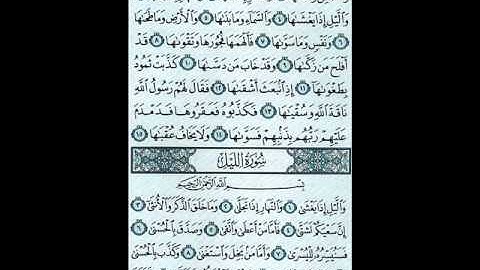 وَٱلَّيۡلِ إِذَا يَغۡشَىٰهَا ٤ وَٱلسَّمَآءِ وَمَا بَنَىٰهَا ٥ وَٱلۡأَرۡضِ وَمَا طَحَىٰهَا
٦ وَنَفۡسٖ وَمَا سَوَّىٰهَا ٧ فَأَلۡهَمَهَا فُجُورَهَا وَتَقۡوَىٰهَا ٨ قَدۡ
أَفۡلَحَ مَن زَكَّىٰهَا ٩ وَقَدۡ خَابَ مَن دَسَّىٰهَا ١٠ كَذَّبَتۡ ثَمُودُ
بِطَغۡوَىٰهَآ ١١ إِذِ ٱنۢبَعَثَ أَشۡقَىٰهَا ١٢ فَقَالَ لَهُمۡ رَسُولُ ٱللَّهِ
نَاقَةَ ٱللَّهِ وَسُقۡيَٰهَا ١٣ فَكَذَّبُوهُ فَعَقَرُوهَا فَدَمۡدَمَ
عَلَيۡهِمۡ رَبُّهُم بِذَنۢبِهِمۡ فَسَوَّىٰهَا ١٤ وَلَا يَخَافُ عُقۡبَٰهَا ١٥
سُورَةُ اللَّيۡلِ
بِسۡمِ ٱللَّهِ ٱلرَّحۡمَٰنِ ٱلرَّحِيمِ
وَٱلَّيۡلِ إِذَا يَغۡشَىٰ ١ وَٱلنَّهَارِ إِذَا تَجَلَّىٰ ٢ وَمَا خَلَقَ ٱلذَّكَرَ وَٱلۡأُنثَىٰٓ ٣
إِنَّ سَعۡيَكُمۡ لَشَتَّىٰ ٤ فَأَمَّا مَنۡ أَعۡطَىٰ وَٱتَّقَىٰ ٥ وَصَدَّقَ بِٱلۡحُسۡنَىٰ ٦
فَسَنُيَسِّرُهُۥ لِلۡيُسۡرَىٰ ٧ وَأَمَّا مَنۢ بَخِلَ وَٱسۡتَغۡنَىٰ ٨ وَكَذَّبَ بِٱلۡحُسۡنَىٰ